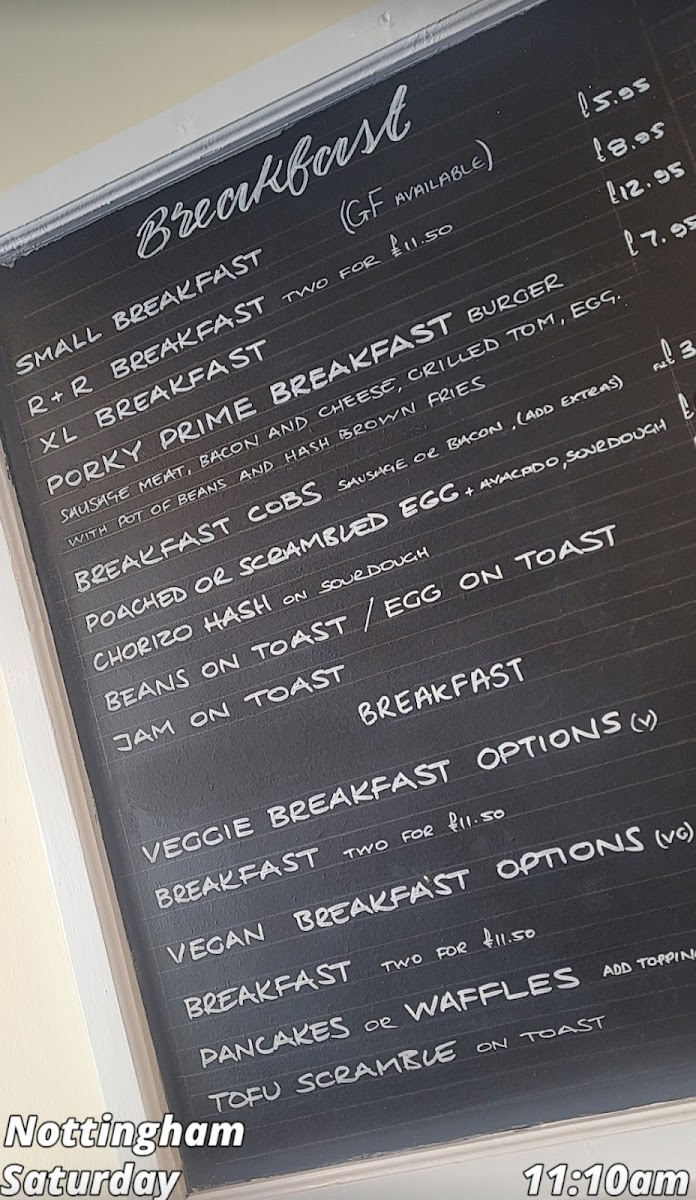 Breakfast
SMALL BREAKFAST (GF AVAILABLE) £5.95
R+R BREAKFAST TWO FOR £11.50 £8.95
XL BREAKFAST £12.95
PORKY PRIME BREAKFAST BURGER £7.95
SAUSAGE MEAT, BACON AND CHEESE, GRILLED TOM, EGG.
WITH POT OF BEANS AND HASH BROWN FRIES
BREAKFAST COBS SAUSAGE OR BACON, (ADD EXTRAS) £3
POACHED OR SCRAMBLED EGG + AVACADO, SOURDOUGH £
CHORIZO HASH ON SOURDOUGH
BEANS ON TOAST / EGG ON TOAST
JAM ON TOAST
BREAKFAST
VEGGIE BREAKFAST OPTIONS (V)
BREAKFAST TWO FOR £11.50
VEGAN BREAKFAST OPTIONS (VG)
BREAKFAST TWO FOR £11.50
PANCAKES OR WAFFLES ADD TOPPIN
TOFU SCRAMBLE ON TOAST
Nottingham
Saturday 11:10am